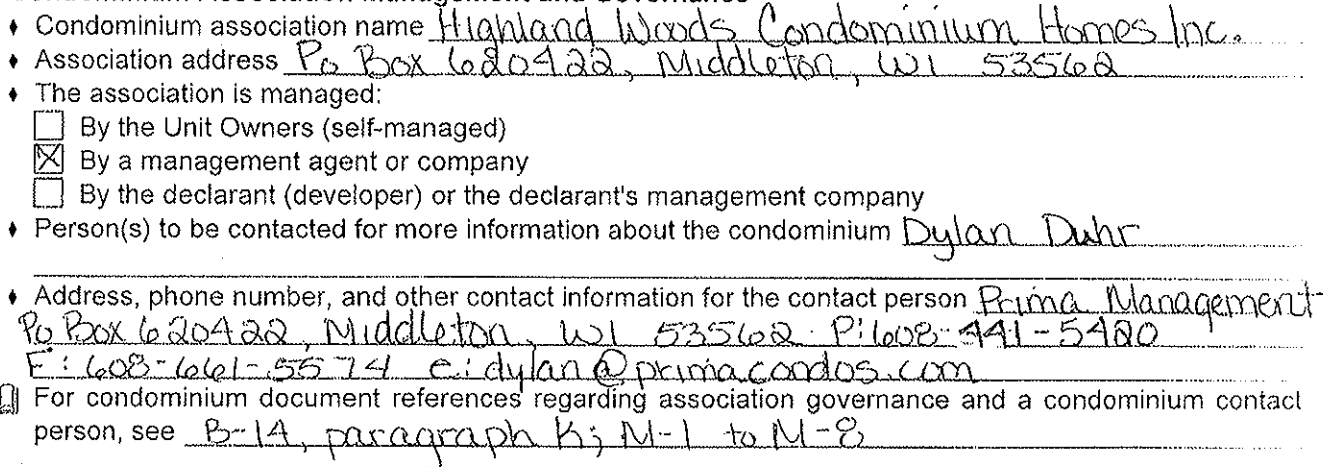 ♦ Condominium association name Highland Woods Condominium Homes Inc.
♦ Association address Po Box 620422, Middleton, WI 53562
♦ The association is managed:
☐ By the Unit Owners (self-managed)
☒ By a management agent or company
☐ By the declarant (developer) or the declarant's management company
♦ Person(s) to be contacted for more information about the condominium Dylan Duhr
♦ Address, phone number, and other contact information for the contact person Prima Management
Po Box 620422, Middleton, WI 53562 P: 608-441-5420
F: 608-661-5574 e: dylan@primacondos.com
For condominium document references regarding association governance and a condominium contact
person, see B-14, paragraph K; M-1 to M-8